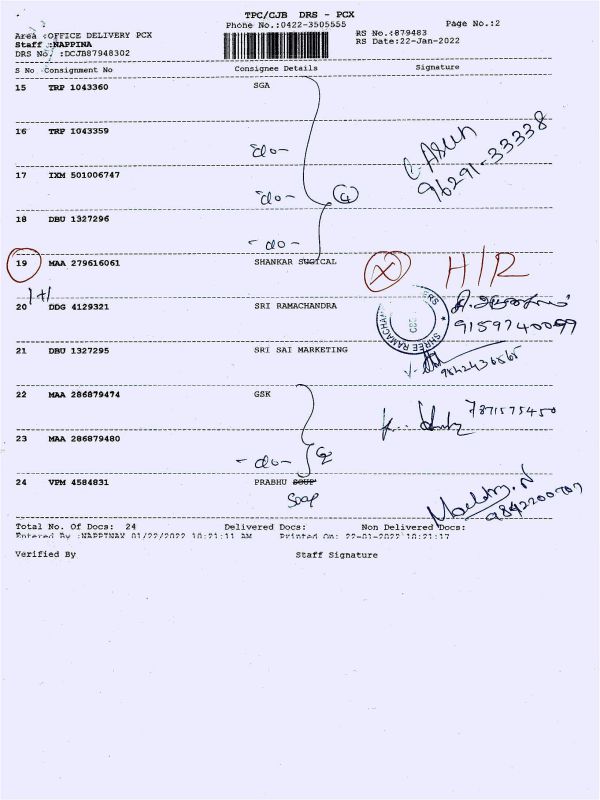 TPC/CJB DRS - PCX
Phone No.:0422-3505555 Page No.:2
Area :OFFICE DELIVERY PCX RS No.:879483
Staff :NAPPINA RS Date:22-Jan-2022
DRS No. :DCJB87948302
S No Consignment No Consignee Details Signature
15 TRP 1043360 SGA
16 TRP 1043359
-do-
C. ASUN
96291-33338
17 IXM 501006747
-do- 4
18 DBU 1327296
-do-
19 MAA 279616061 SHANKAR SUGICAL X H/R
1+1
20 DDG 4129321 SRI RAMACHANDRA
SHREE RAMACHAN
9159740099
21 DBU 1327295 SRI SAI MARKETING
9842436565
22 MAA 286879474 GSK
7871575450
23 MAA 286879480
-do- 2
24 VPM 4584831 PRABHU SOUP
Soap
9842200707
Total No. Of Docs: 24 Delivered Docs: Non Delivered Docs:
Entered By :NAPPINAX 01/22/2022 10:21:11 AM Printed On: 22-01-2022 10:21:17
Verified By Staff Signature